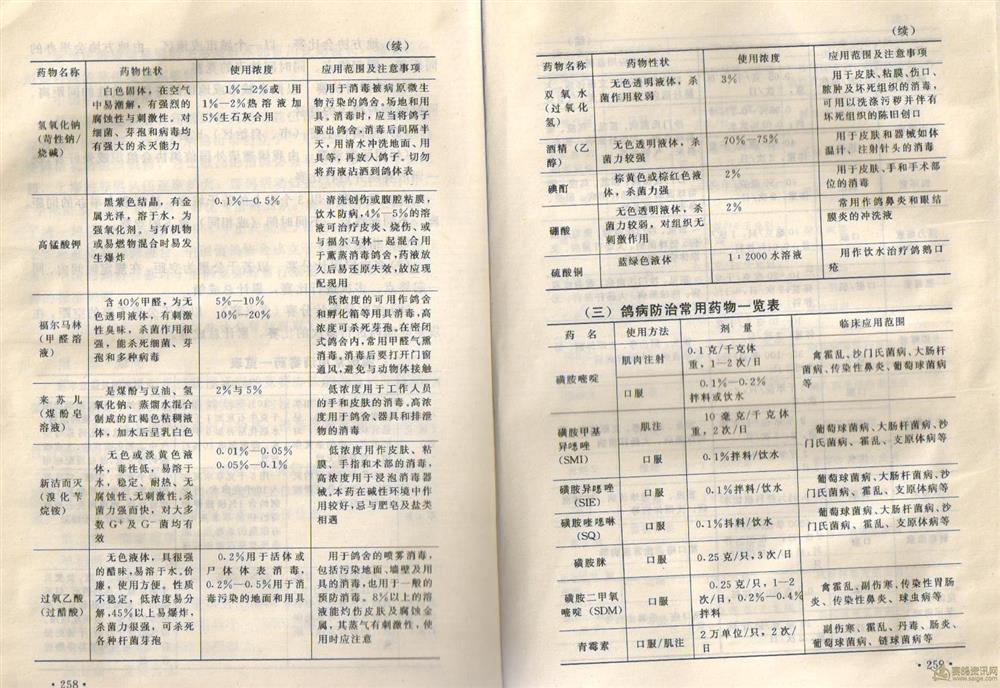 (续)
药物名称 药物性状 使用浓度 应用范围及注意事项
氢氧化钠
(苛性钠/
烧碱)
白色固体，在空气
中易潮解，有强烈的
腐蚀性与刺激性。对
细菌、芽孢和病毒均
有强大的杀灭能力
1%—2%或 用
1%—2%热溶液加
5%生石灰合用
用于消毒被病原微生
物污染的鸽舍,场地和用
具。消毒时，应当将鸽子
驱出鸽舍,消毒后间隔半
天，用清水冲洗地面、用
具等，再放入鸽子。切勿
将药液沾洒到鸽体表
高锰酸钾
黑紫色结晶，有金
属光泽，溶于水，为
强氧化剂，与有机物
或易燃物混合时易发
生爆炸
0.1%—0.5%
清洗创伤或腹腔粘膜，
饮水防病,4%—5%的溶
液可治疗皮炎、烧伤、或
与福尔马林一起混合用
于薰蒸消毒鸽舍,药液放
久后易还原失效,故应现
配现用
福尔马林
(甲醛溶
液)
含40%甲醛，为无
色透明液体，有刺激
性臭味，杀菌作用很
强，能杀死细菌、芽
孢和多种病毒
5%—10%
10%—20%
低浓度的可用作鸽舍
和孵化箱等用具消毒,高
浓度可杀死芽孢,在密闭
式鸽舍内,常用甲醛气熏
消毒。消毒后要打开门窗
通风,避免与动物体接触
来苏儿
(煤酚皂
溶液)
是煤酚与豆油、氢
氧化钠、蒸馏水混合
制成的红褐色粘稠液
体，加水后呈乳白色
2%与5%
低浓度用于工作人员
的手和皮肤的消毒,高浓
度用于鸽舍、器具和排泄
物的消毒
新洁而灭
(溴化苄
烷铵)
无色或淡黄色液
体，毒性低，易溶于
水，稳定、耐热、无
腐蚀性、无刺激性。杀
菌力强而快，对大多
数G+及G−菌均有
效
0.01%—0.05%
0.05%—0.1%
低浓度用作皮肤、粘
膜、手指和术部的消毒，
高浓度用于浸泡消毒器
械。本药在碱性环境中作
用较好,忌与肥皂及盐类
相遇
过氧乙酸
(过醋酸)
无色液体，具很强
的醋味,易溶于水,价
廉，使用方便。性质
不稳定，低浓度易分
解,45%以上易爆炸,
杀菌力很强，可杀死
各种杆菌芽孢
0.2%用于活体或
尸体体表消毒，
0.2%—0.5%用于消
毒污染的地面和用具
用于鸽舍的喷雾消毒，
包括污染地面、墙壁及用
具的消毒,也用于一般的
预防消毒。8%以上的溶
液能灼伤皮肤及腐蚀金
属，其蒸气有刺激性，使
用时应注意
·258·
(续)
药物名称 药物性状 使用浓度 应用范围及注意事项
双氧水
(过氧化
氢)
无色透明液体，杀
菌作用较弱
3%
用于皮肤、粘膜、伤口、
脓肿及坏死组织的消毒，
可用以洗涤污秽并伴有
坏死组织的陈旧创口
酒精(乙
醇)
无色透明液体，杀
菌力较强
70%—75%
用于皮肤和器械如体
温计、注射针头的消毒
碘酊
棕黄色或棕红色液
体，杀菌力强
2%
用于皮肤、手和手术部
位的消毒
硼酸
无色透明液体，杀
菌力较弱，对组织无
刺激作用
2%
常用作鸽鼻炎和眼结
膜炎的冲洗液
硫酸铜
蓝绿色液体
1:2000水溶液
用作饮水治疗鸽鹅口
疮
(三) 鸽病防治常用药物一览表
药 名 使用方法 剂 量 临床应用范围
磺胺嘧啶
肌肉注射
0.1克/千克体
重，1—2次/日
口服
0.1%—0.2%
拌料或饮水
禽霍乱、沙门氏菌病、大肠杆
菌病、传染性鼻炎、葡萄球菌病
等
磺胺甲基
异噁唑
(SMI)
肌注
10毫克/千克体
重，2次/日
口服
0.1%拌料/饮水
葡萄球菌病、大肠杆菌病、沙
门氏菌病、霍乱、支原体病等
磺胺异噁唑
(SIE)
口服
0.1%拌料/饮水
葡萄球菌病、大肠杆菌病、沙
门氏菌病、霍乱、支原体病等
磺胺喹噁啉
(SQ)
口服
0.1%抖料/饮水
葡萄球菌病、大肠杆菌病、沙
门氏菌病、霍乱、支原体病等
磺胺脒
口服
0.25克/只，3次/日
磺胺二甲氧
嘧啶(SDM)
口服
0.25克/只，1—2
次/日，0.2%—0.4%
拌料
禽霍乱、副伤寒、传染性胃肠
炎、传染性鼻炎、球虫病等
青霉素
口服/肌注
2万单位/只，2次/
日
副伤寒、霍乱、丹毒、肠炎、
葡萄球菌病、链球菌病等
·259·
赛鸽资讯网
www.saige.com